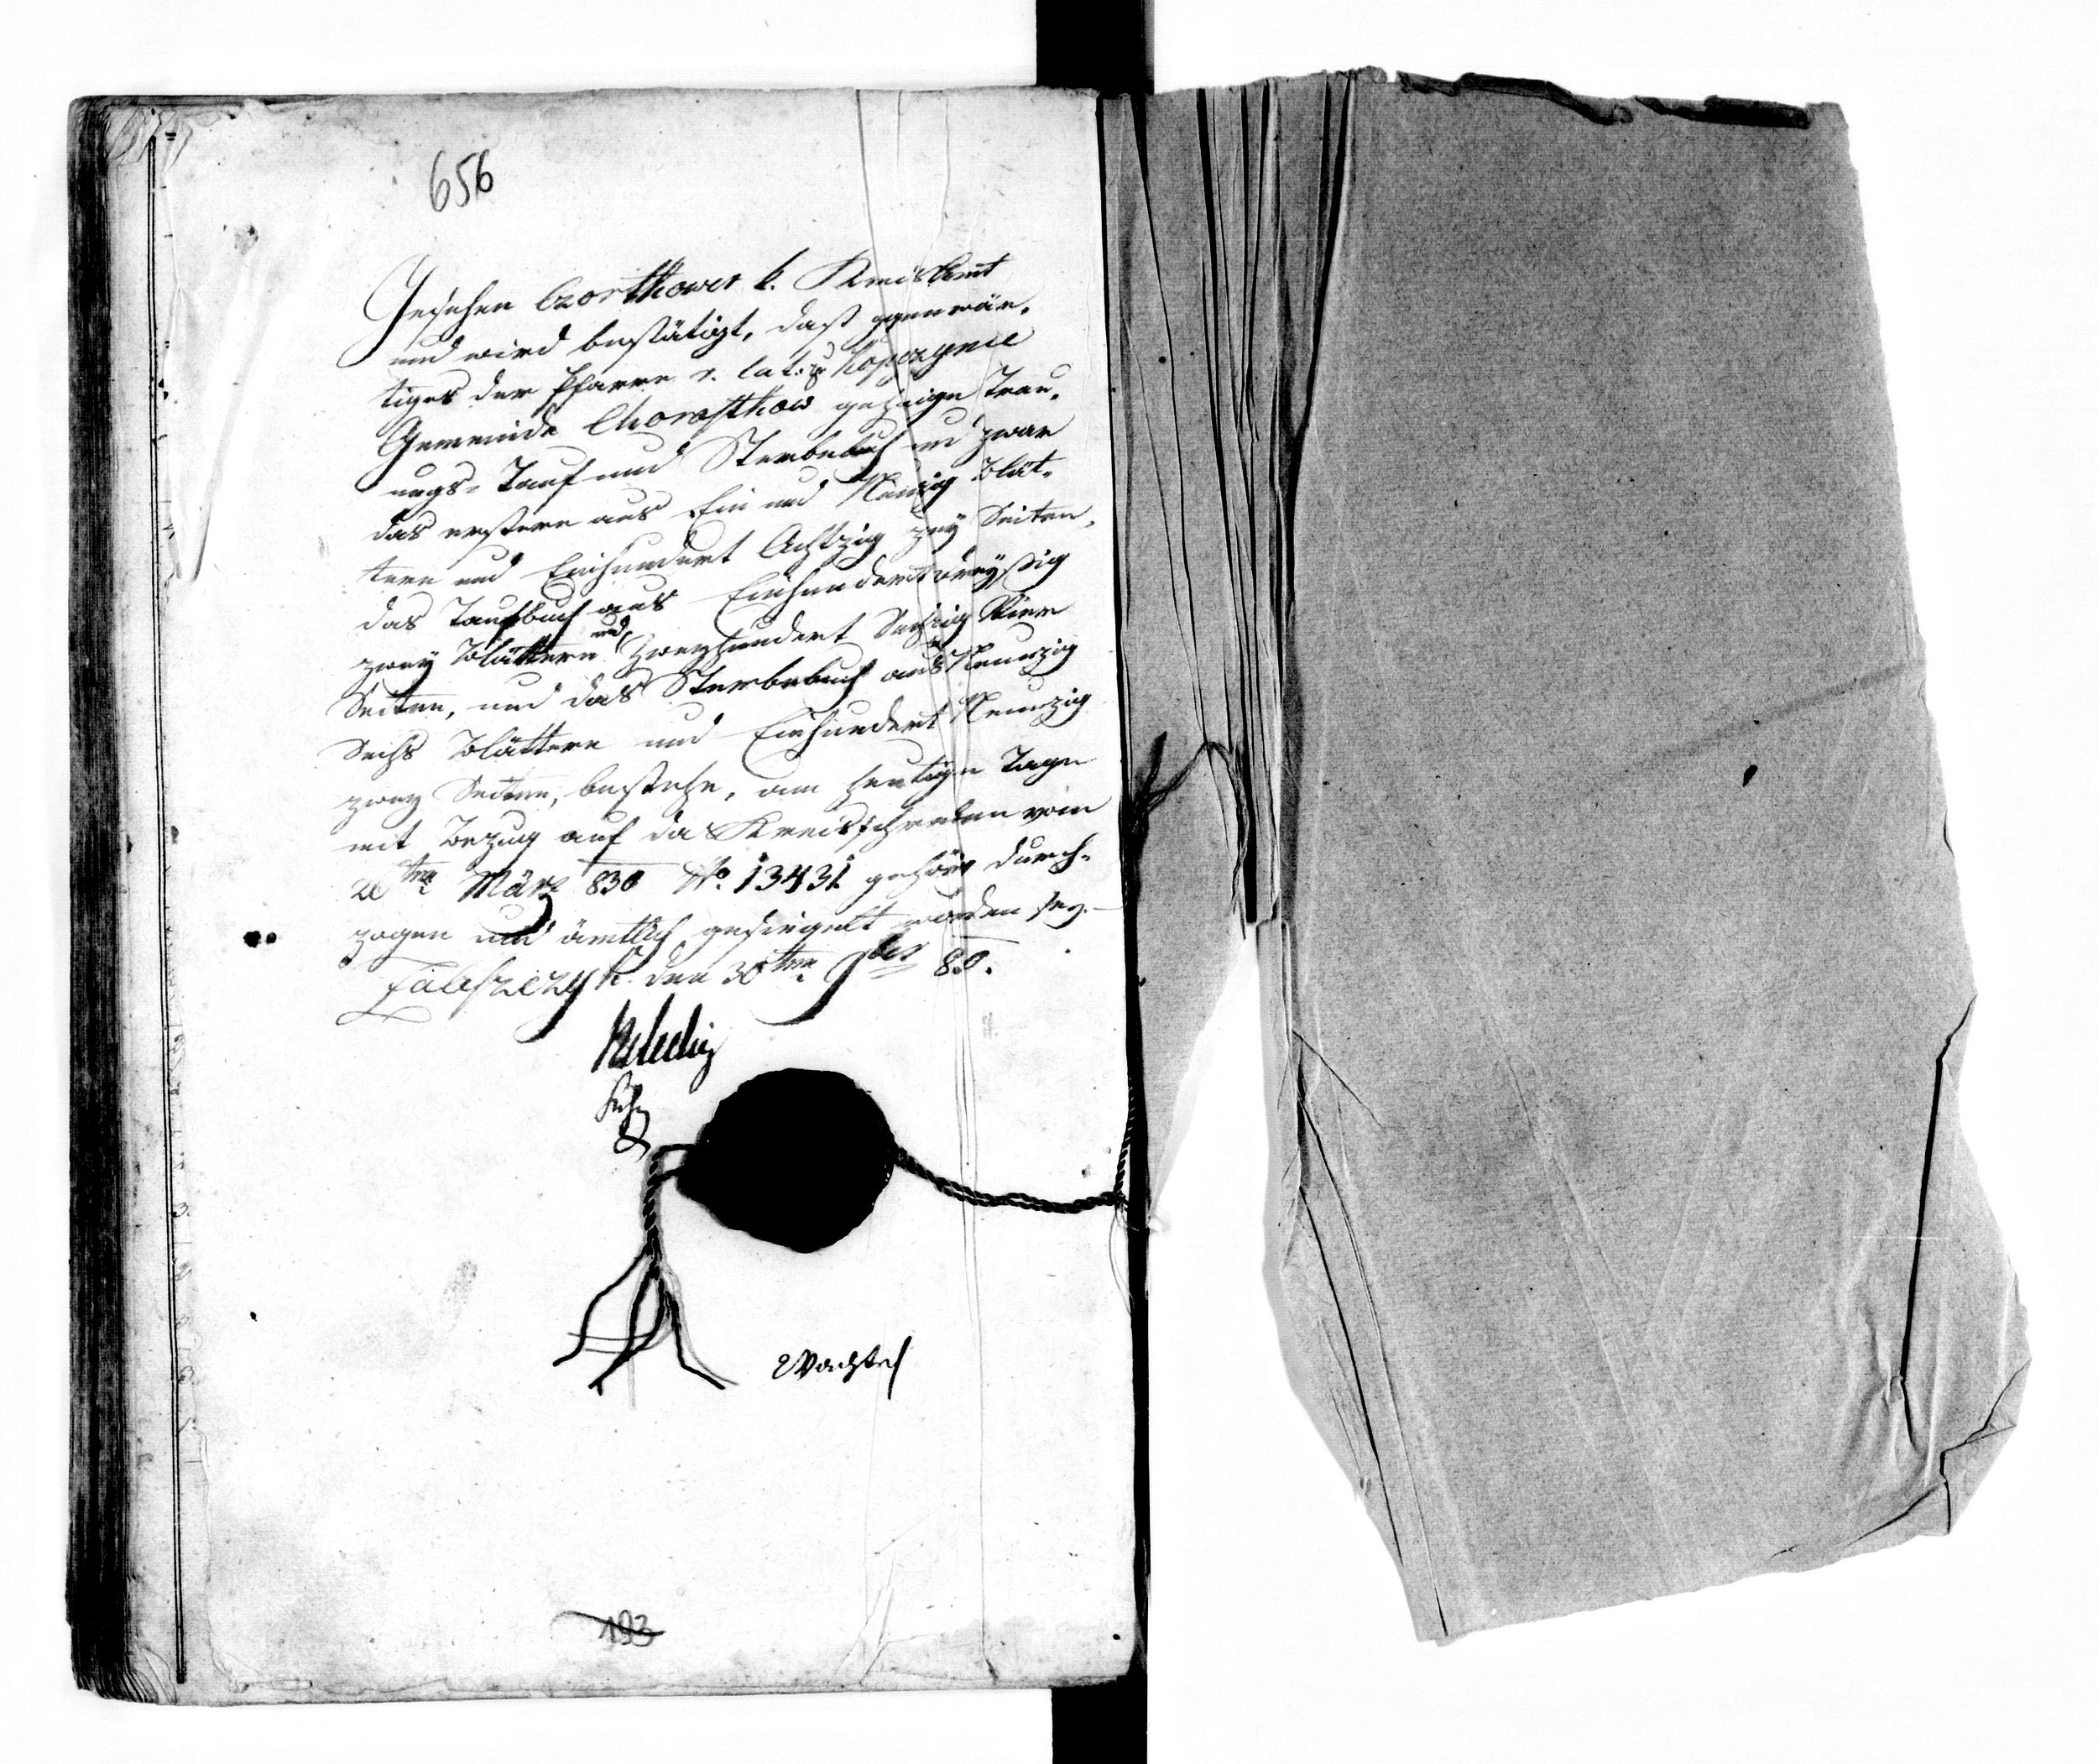 656
Gesehen Czortkower k. Kreisamt
und wird bestätigt, daß gegenwär-
tiges der Pfarre r. lat. Kopeczynce
Gemeinde Chorosthow gehörige Trau-
ungs- Tauf und Sterbebuch und zwar
das erstere aus Ein und Neunzig Blät-
tern und Einhundert Achtzig zwey Seiten,
das Taufbuch aus Einhundert dreyßig
zwey Blättern und Zweyhundert Sechzig Vier
Seiten, und das Sterbebuch aus Neunzig
Sechs Blättern und Einhundert Neunzig
zwey Seiten, bestehe, am heutigen Tage
mit Bezug auf das Kreisschreiben vom
ten März 830 No. 13431 gehörig durch-
zogen und ämtlich gesiegelt worden sey.
Zaleszczyk den 30ten 9ber 830.
193